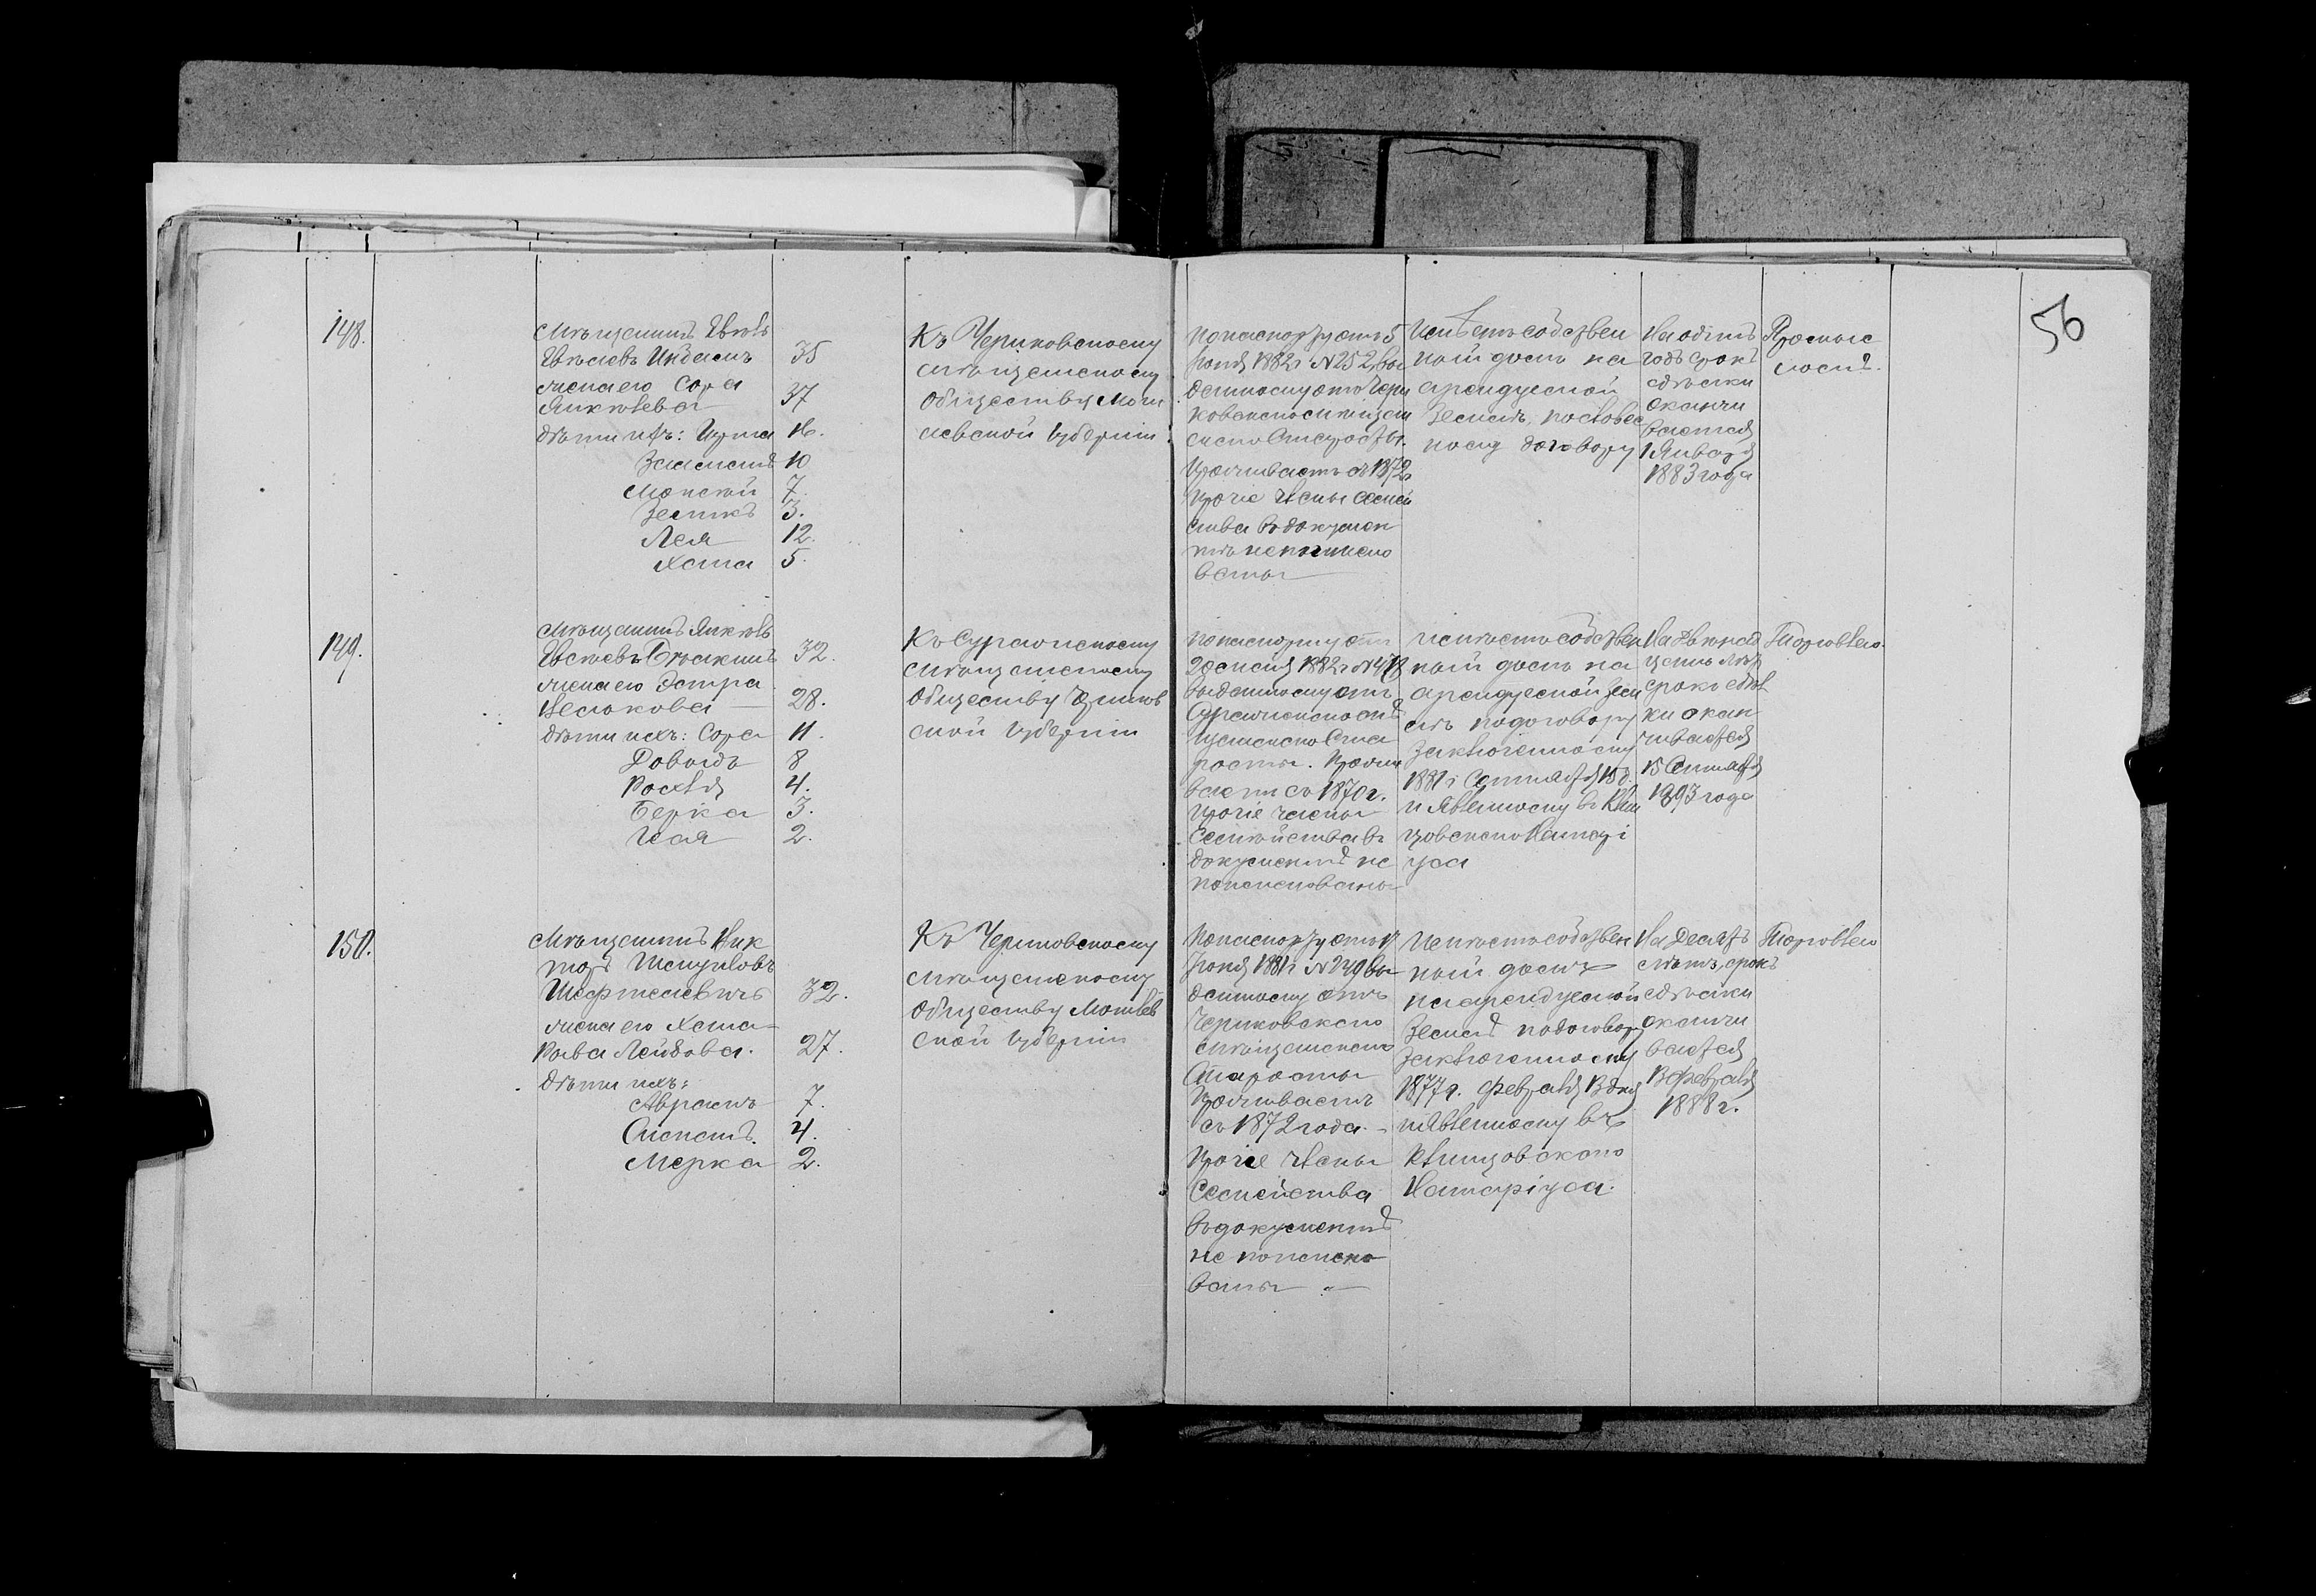 56
148.
Мѣщанинъ
35
жена его Сора
Янкелева
37
дѣти ихъ:
16.
Залманъ 10
7.
3.
Лея 12.
Хана 5.
Къ Чериковскому
мѣщанскому
обществу Моги
левской губерніи
по паспорту отъ 5
Іюня 1882 г. № 252 вы
данному отъ Чери
ковскаго мѣщан
скаго Старосты.
Проживаетъ съ 1872 г.
прочіе члены семей
ства въ докумен
тѣ не поимено
ваны
Имѣетъ собствен
ный домъ на
арендуемой
землѣ, по словес
ному договору
На одинъ
годъ срокъ
сдѣлки
оканчи
вается
1 Января
1883 года
Промыс
ломъ.
149.
Мѣщанинъ Янкель
32.
жена его Эстра
28.
дѣти ихъ: Сора 11.
Довидъ 8
Рохля 4.
Берка 3.
2.
Къ Суражскому
мѣщанскому
обществу Чернигов
ской губерніи
по паспорту отъ
1882 г. №
выданному отъ
Суражскаго мѣ
щанскаго Ста
росты. Прожи
ваетъ съ 1870 г.
прочіе члены
Семейства въ
документѣ не
поименованы
имѣетъ собствен
ный домъ на
арендуемой зем
лѣ по договору
заключенному
1881 г. Сентября 15 д.
и явленному въ Клин
цовскаго Натарі
уса
На двѣнад
цать лѣтъ
срокъ сдѣл
ки окан
чивается
15 Сентября
1893 года
Торговлею.
150.
Мѣщанинъ
Шефтелевичъ 32.
жена его Хана
Рыва Лейбова. 27.
дѣти ихъ:
Абрамъ 7.
4.
Мерка 2.
Къ Чериковскому
мѣщанскому
обществу Могилев
ской губерніи
По паспорту отъ
Іюня 1881 г. № 249 вы
данному отъ
Чериковскаго
мѣщанскаго
Старосты
Проживаетъ
съ 1872 года. -
прочіе члены
Семейства
въ документѣ
не поимено
ваны -
Имѣетъ собствен
ный домъ
на арендуемой
землѣ по договору
заключенному
1877 г. февраля 13 дня
и явленному въ
Клинцовскаго
Натаріуса.
На десять
лѣтъ, срокъ
сдѣлки
оканчи
вается
13 февраля
1888 г.
Торговлею